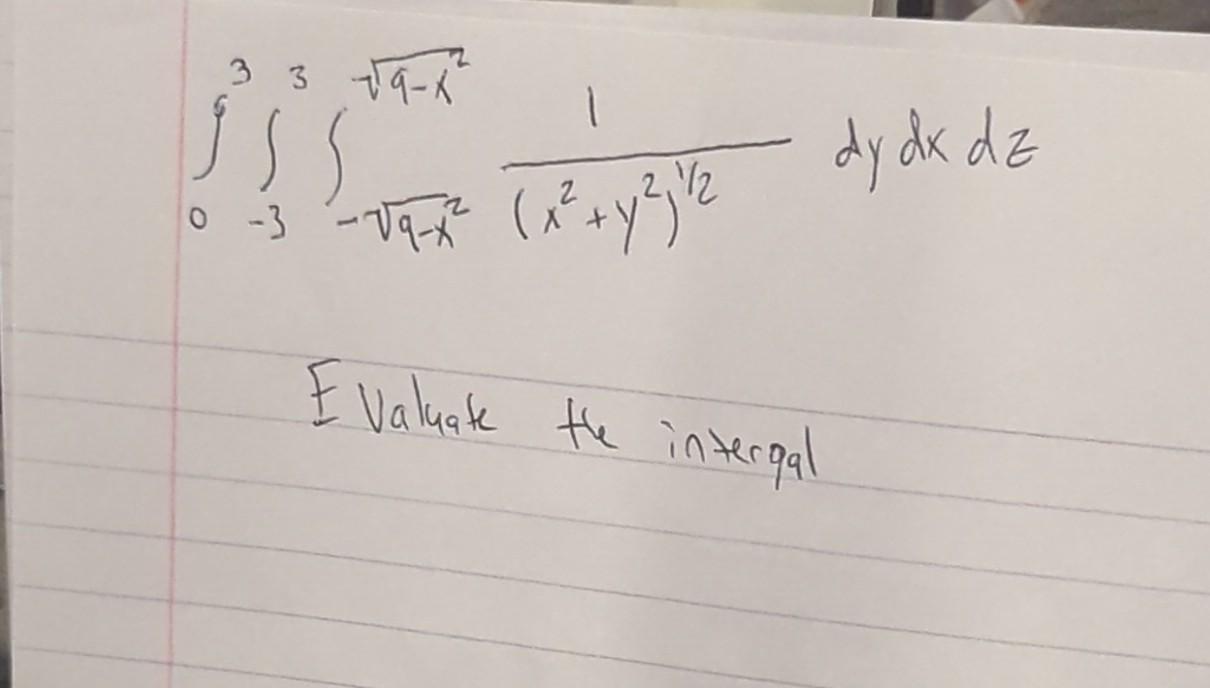 ∫₀³ ∫₋₃³ ∫_{-√(9-x²)}^{√(9-x²)} 1/(x²+y²)^{1/2} dy dx dz
Evaluate the intergal